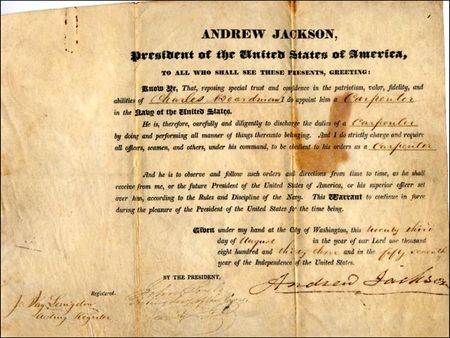 ANDREW JACKSON,
President of the United States of America,
TO ALL WHO SHALL SEE THESE PRESENTS, GREETING:
Know Ye, That, reposing special trust and confidence in the patriotism, valor, fidelity, and
abilities of Charles Boardman I do appoint him a Carpenter
in the Navy of the United States.
He is, therefore, carefully and diligently to discharge the duties of a Carpenter
by doing and performing all manner of things thereunto belonging. And I do strictly charge and require
all officers, seamen, and others, under his command, to be obedient to his orders as a Carpenter
And he is to observe and follow such orders and directions from time to time, as he shall
receive from me, or the future President of the United States of America, or his superior officer set
over him, according to the Rules and Discipline of the Navy. This Warrant to continue in force
during the pleasure of the President of the United States for the time being.
Given under my hand at the City of Washington, this twenty third
day of August in the year of our Lord one thousand
eight hundred and thirty and in the fifty seventh
year of the Independence of the United States.
BY THE PRESIDENT,
Andrew Jackson
Registered.
Acting Register